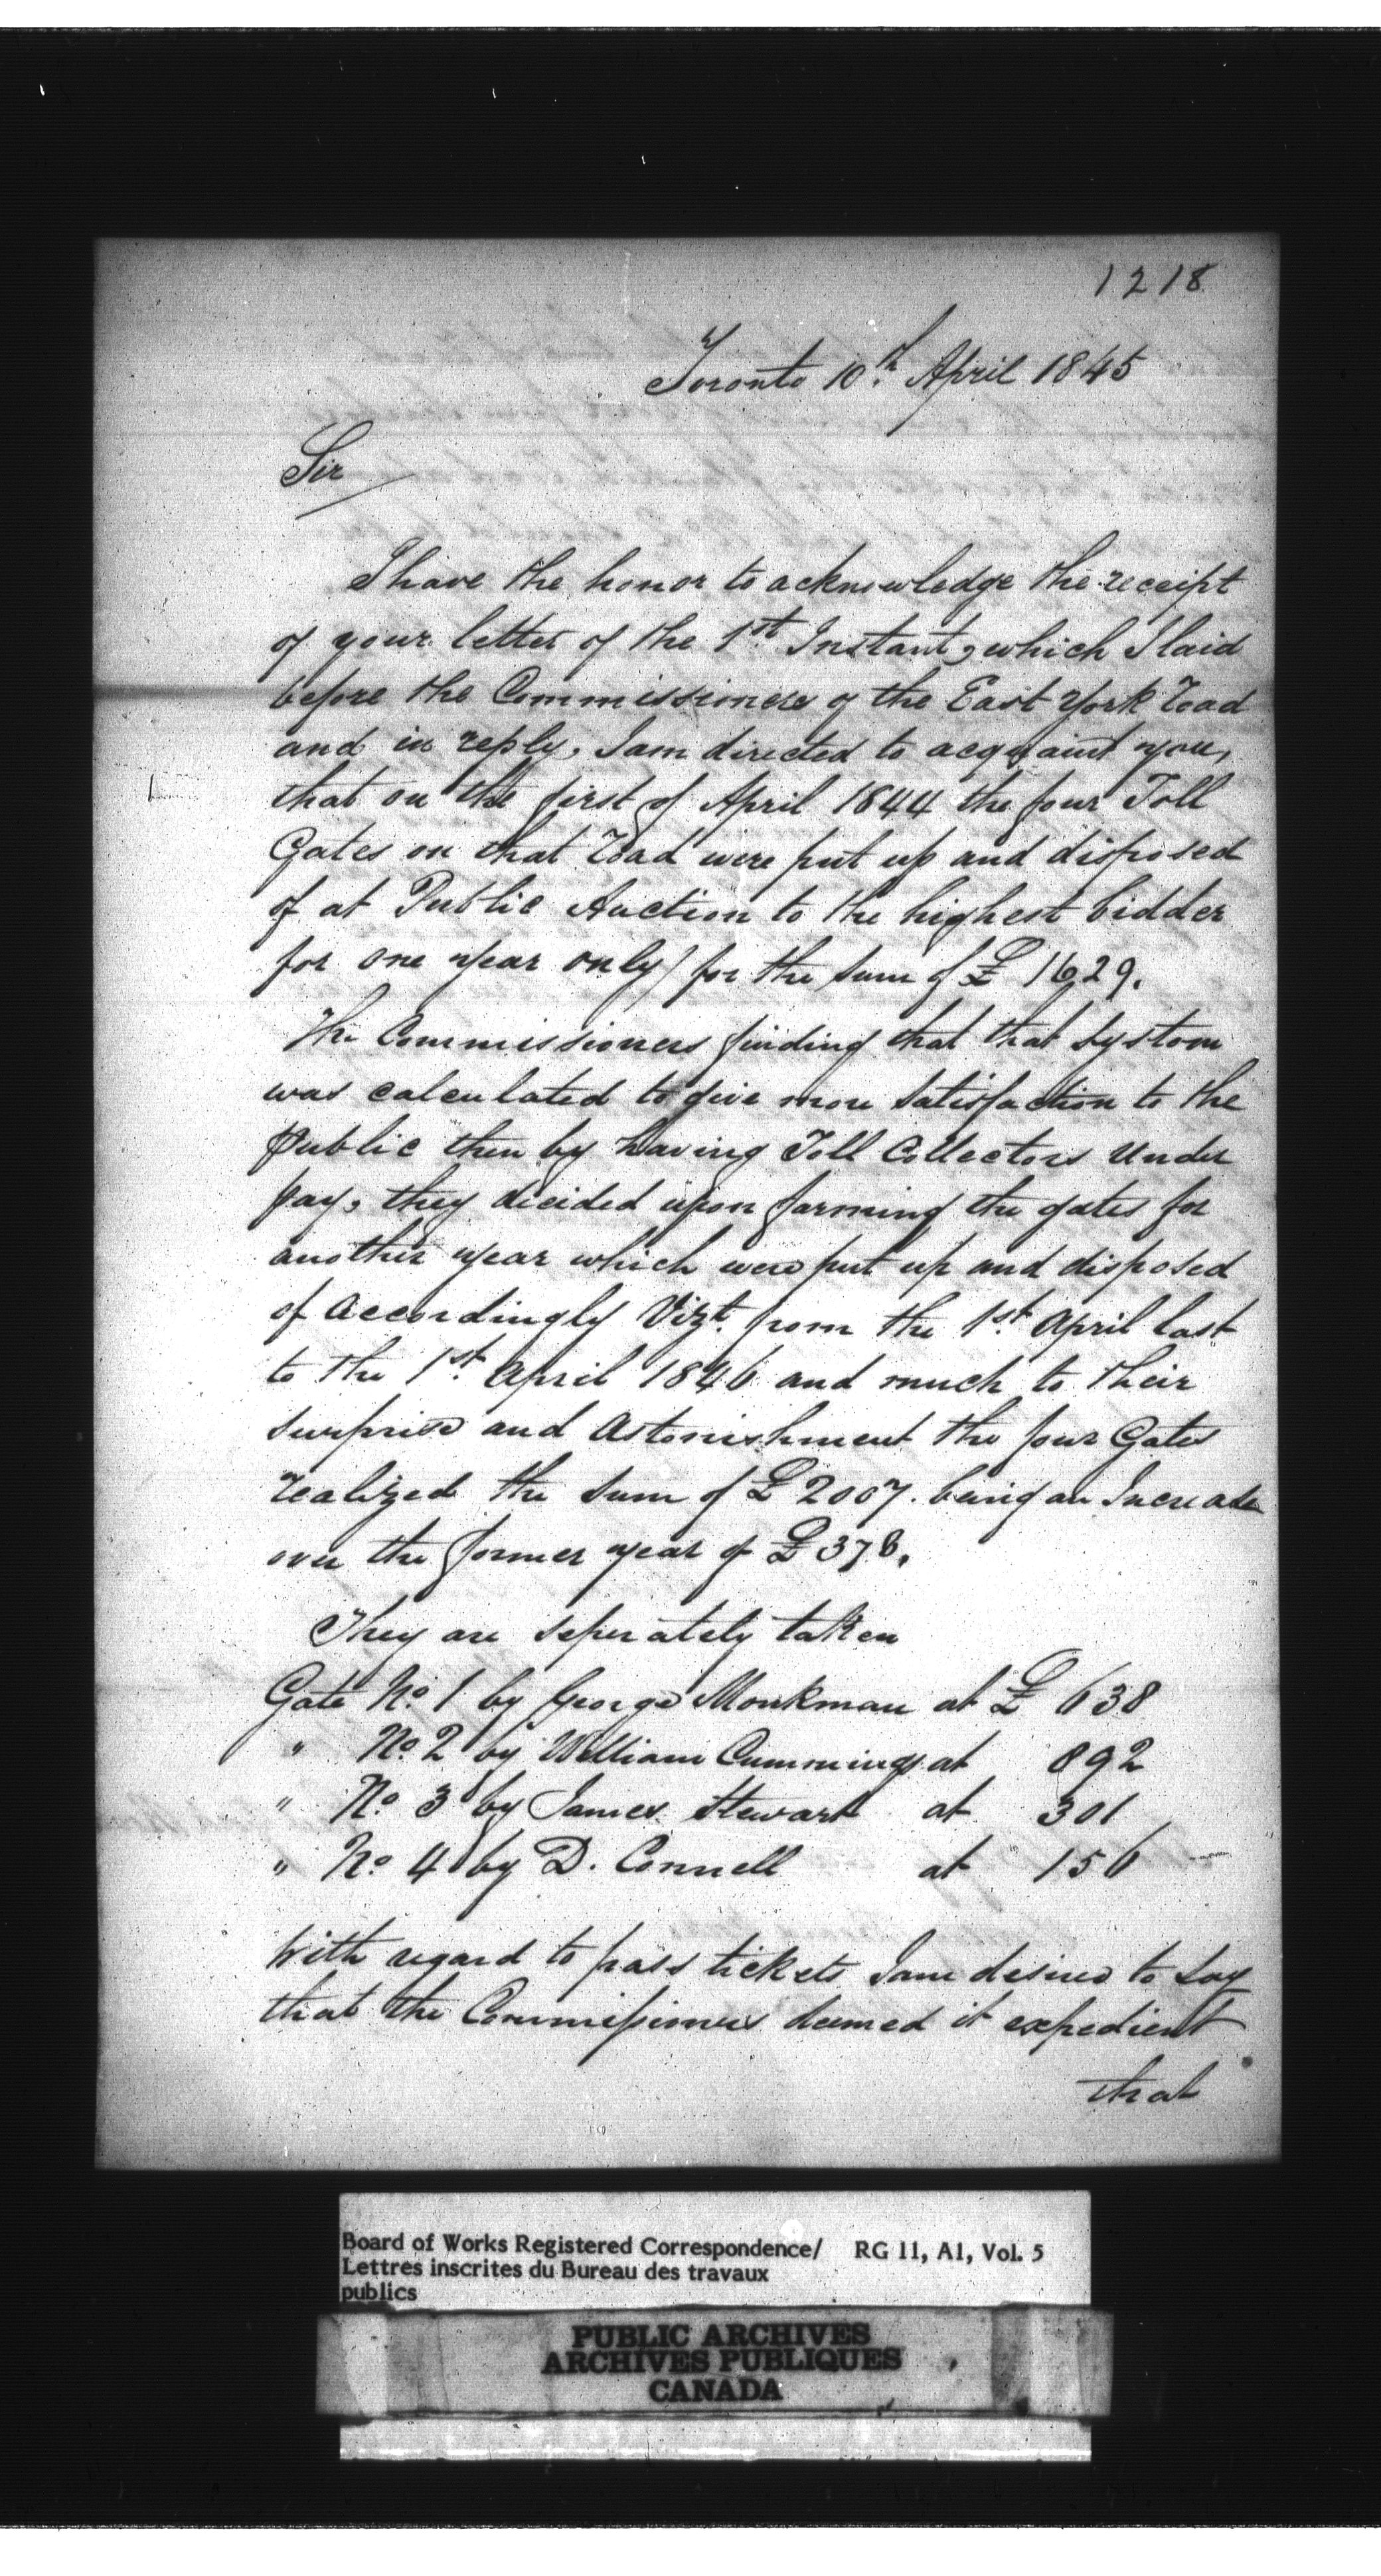 1218
Toronto 10th April 1845
Sir
I have the honor to acknowledge the receipt
of your letter of the 1st Instant, which I laid
before the Commissioners of the East York Road
and in reply, I am directed to acquaint you,
that on the first of April 1844 the four Toll
Gates on that Road were put up and disposed
of at Public Auction to the highest bidder
for one year only) for the sum of £ 1629.
The Commissioners finding that that system
was calculated to give more satisfaction to the
public then by having Toll Collectors under
pay, they decided upon farming the gates for
another year which were put up and disposed
of accordingly Vizt. from the 1st April last
to the 1st April 1846 and much to their
surprise and astonishment the four Gates
realized the sum of £ 2007. being an Increase
over the former year of £ 378.
They are seperately taken
Gate No. 1 by George Monkman at £ 638
" No. 2 by William Cummings at 892
" No. 3 by James Stewart at 301
" No. 4 by D. Connell at 156
With regard to pass tickets I am desired to say
that the Commissioners deemed it expedient
that
Board of Works Registered Correspondence/ RG 11, A1, Vol. 5
Lettres inscrites du Bureau des travaux
publics
PUBLIC ARCHIVES
ARCHIVES PUBLIQUES
CANADA